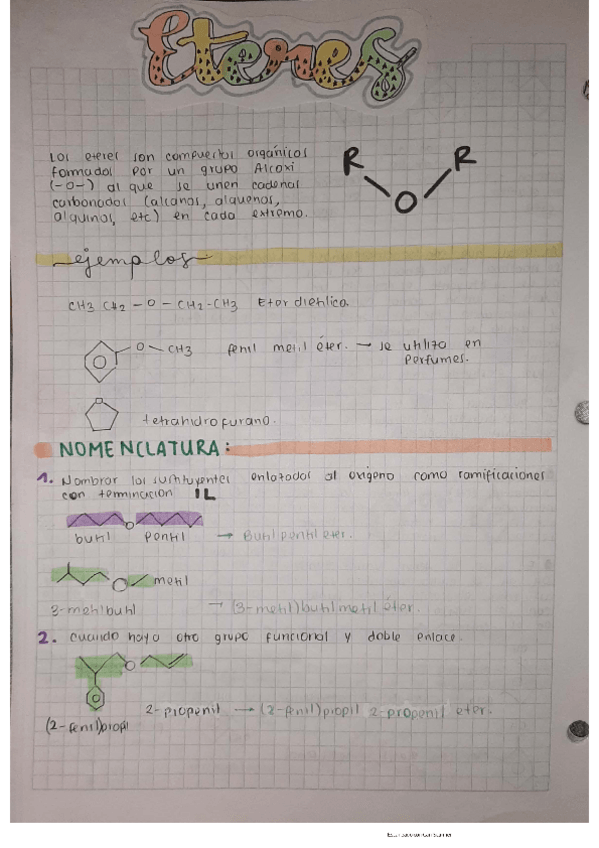 Eteres
Los eteres son compuestos orgánicos
formados por un grupo Alcoxi
(-O-) al que se unen cadenas
carbonadas (alcanos, alquenos,
alquinos, etc) en cada extremo.
R R
O
ejemplos
CH3 CH2 - O - CH2-CH3 Eter dietilico.
O CH3 fenil metil éter. → se utiliza en
perfumes.
tetrahidrofurano.
NOMENCLATURA:
1. Nombrar los sustituyentes enlazados al oxígeno como ramificaciones
con terminacion IL
O
butil pentil → Butil pentil eter.
O metil
3-metilbutil → (3-metil)butil metil éter.
2. cuando haya otro grupo funcional y doble enlace.
O
2-propenil → (2-fenil)propil 2-propenil eter.
(2-fenil)propil